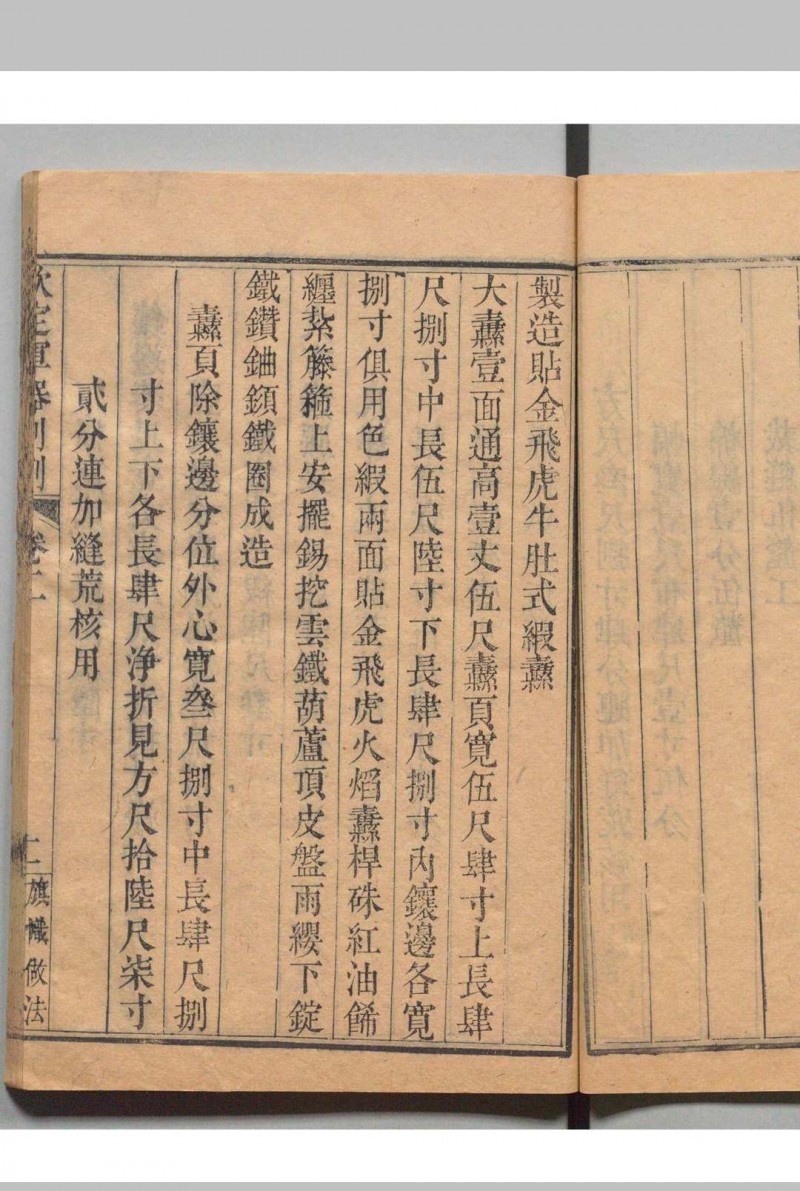 製造貼金飛虎牛肚式緞纛
大纛壹面通高壹丈伍尺纛頁寬伍尺肆寸上長肆
尺捌寸中長伍尺陸寸下長肆尺捌寸內鑲邊各寬
捌寸俱用色緞兩面貼金飛虎火焰纛桿硃紅油餙
纏紮籐箍上安擺錫挖雲鐵葫蘆頂皮盤雨纓下錠
鐵鑽鈾鎖鐵圈成造
纛頁除鑲邊分位外心寬叁尺捌寸中長肆尺捌
寸上下各長肆尺净折見方尺拾陸尺柒寸
貳分連加縫荒核用
欽定軍器則例
卷二
二
旗幟做法